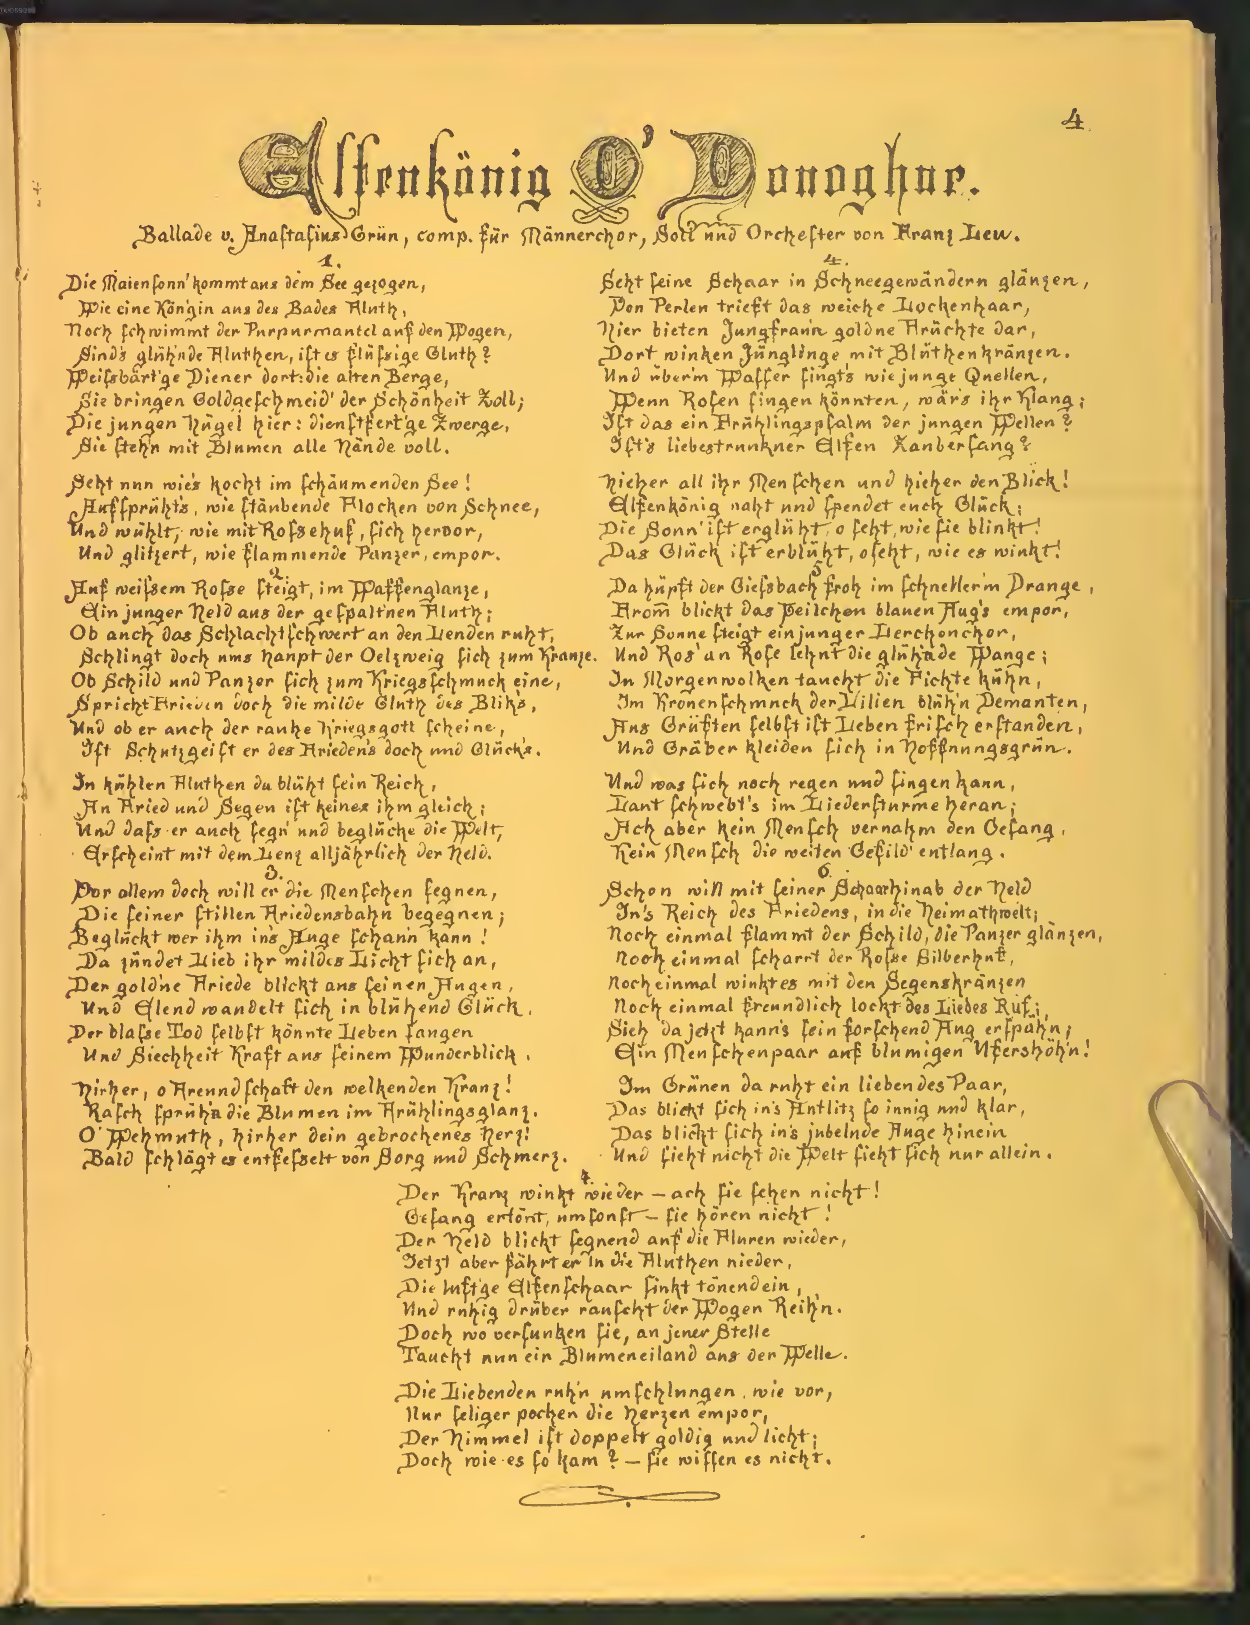 4
Elfenkönig O'Donoghue.
Ballade v. Anaſtaſius Grün, comp. für Männerchor, Soli und Orcheſter von Franz Leu.
1.
Die Maienſonn' kommt aus dem See gezogen,
Wie eine Kön'gin aus des Bades Fluth,
Noch ſchwimmt der Purpurmantel auf den Wogen,
Sind's glüh'nde Fluthen, iſt es flüſsige Gluth?
Weiſsbärt'ge Diener dort: die alten Berge,
Sie bringen Goldgeſchmeid' der Schönheit Zoll;
Die jungen Hügel hier: dienſtfert'ge Zwerge,
Sie ſteh'n mit Blumen alle Hände voll.
Seht nun wie's kocht im ſchäumenden See!
Aufſprüht's, wie ſtäubende Flocken von Schnee,
Und wühlt, wie mit Roſsehuf, ſich hervor,
Und glitzert, wie flammende Panzer, empor.
2.
Auf weiſsem Roſse ſteigt, im Waffenglanze,
Ein junger Held aus der geſpalt'nen Fluth;
Ob auch das Schlachtſchwert an den Lenden ruht,
Schlingt doch ums Haupt der Oelzweig ſich zum Kranze.
Ob Schild und Panzer ſich zum Kriegsſchmuck eine,
Spricht Frieden doch die milde Gluth des Blik's,
Und ob er auch der rauhe Kriegsgott ſcheine,
Iſt Schutzgeiſt er des Frieden's doch und Glück's.
In kühlen Fluthen da blüht ſein Reich,
An Fried und Segen iſt keines ihm gleich;
Und daſs er auch ſegn' und beglücke die Welt,
Erſcheint mit dem Lenz alljährlich der Held.
3.
Vor allem doch will er die Menſchen ſegnen,
Die ſeiner ſtillen Friedensbahn begegnen;
Beglückt wer ihm in's Auge ſchau'n kann!
Da zündet Lieb ihr mildes Licht ſich an,
Der gold'ne Friede blickt aus ſeinen Augen,
Und Elend wandelt ſich in blühend Glück,
Der blaſse Tod ſelbſt könnte Leben ſaugen
Und Siechheit Kraft aus ſeinem Wunderblick.
Hirher, o Freundſchaft den welkenden Kranz!
Raſch ſprüh'n die Blumen im Frühlingsglanz.
O' Wehmuth, hirher dein gebrochenes Herz!
Bald ſchlägt es entfeſselt von Sorg und Schmerz.
4.
Seht ſeine Schaar in Schneegewändern glänzen,
Von Perlen trieft das weiche Lockenhaar,
Hier bieten Jungfrau'n goldne Früchte dar,
Dort winken Jünglinge mit Blüthenkränzen.
Und über'm Waſſer ſingt's wie junge Quellen,
Wenn Roſen ſingen könnten, wär's ihr Klang;
Iſt das ein Frühlingspſalm der jungen Wellen?
Iſt's liebestrunkner Elfen Zauberſang?
Hieher all ihr Menſchen und hieher den Blick!
Elfenkönig naht und ſpendet euch Glück;
Die Sonn' iſt erglüht, o ſeht, wie ſie blinkt!
Das Glück iſt erblüht, o ſeht, wie es winkt!
5
Da hüpft der Gieſsbach froh im ſchneller'm Drange,
From̄ blickt das Veilchen blauen Aug's empor,
Zur Sonne ſteigt ein junger Lerchenchor,
Und Roſ' an Roſe lehnt die glüh'nde Wange;
In Morgenwolken taucht die Fichte kühn,
Im Kronenſchmuck der Lilien blüh'n Demanten,
Aus Grüften ſelbſt iſt Leben friſch erſtanden,
Und Gräber kleiden ſich in Hoffnungsgrün.
Und was ſich noch regen und ſingen kann,
Laut ſchwebt's im Liederſturme heran;
Ach aber kein Menſch vernahm den Geſang,
Kein Menſch die weiten Gefild' entlang.
6.
Schon will mit ſeiner Schaar hinab der Held
In's Reich des Friedens, in die Heimathwelt;
Noch einmal flammt der Schild, die Panzer glänzen,
Noch einmal ſcharrt der Roſse Silberhuf,
Noch einmal winkt es mit den Segenskränzen
Noch einmal freundlich lockt des Liedes Ruf;
Sieh' da jetzt kann's ſein forſchend Aug erſpäh'n;
Ein Menſchenpaar auf blumigen Ufershöh'n!
Im Grünen da ruht ein liebendes Paar,
Das blickt ſich in's Antlitz ſo innig und klar,
Das blickt ſich in's jubelnde Auge hinein
Und ſieht nicht die Welt ſieht ſich nur allein.
Der Kranz winkt wieder – ach ſie ſehen nicht!
Geſang ertönt, umſonſt – ſie hören nicht!
Der Held blickt ſegnend auf die Fluren wieder,
Jetzt aber fährt er in die Fluthen nieder,
Die luft'ge Elfenſchaar ſinkt tönend ein,
Und ruhig drüber rauſcht der Wogen Reih'n.
Doch wo verſunken ſie, an jener Stelle
Taucht nun ein Blumeneiland aus der Welle.
Die Liebenden ruh'n umſchlungen, wie vor,
Nur ſeliger pochen die Herzen empor,
Der Himmel iſt doppelt goldig und licht;
Doch wie es ſo kam? – ſie wiſſen es nicht.